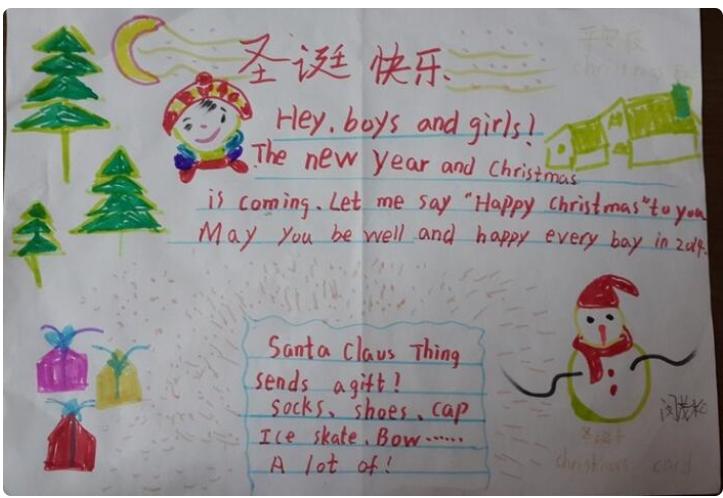 圣诞快乐
平安夜
christmas
Hey, boys and girls!
The new year and Christmas
is coming. Let me say "Happy christmas" to you
May you be well and happy every bay in 2014.
Santa Claus Thing
sends a gift!
socks、shoes、cap
Ice skate、Bow……
A lot of!
christmas card